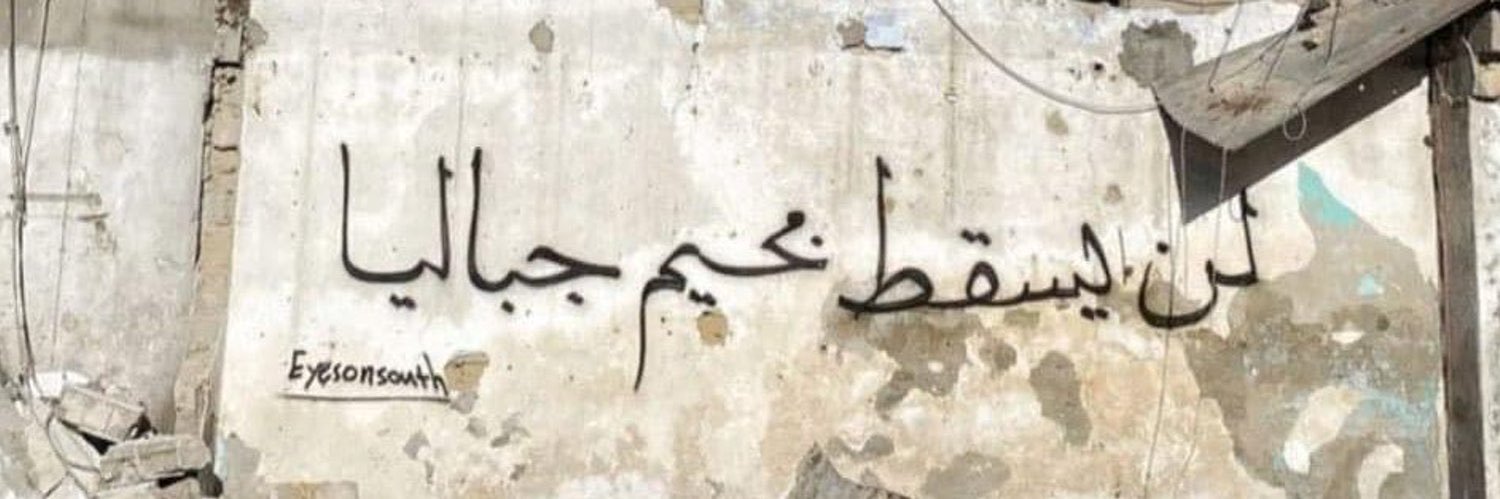 لن يسقط مخيم جباليا
Eyesonsouth